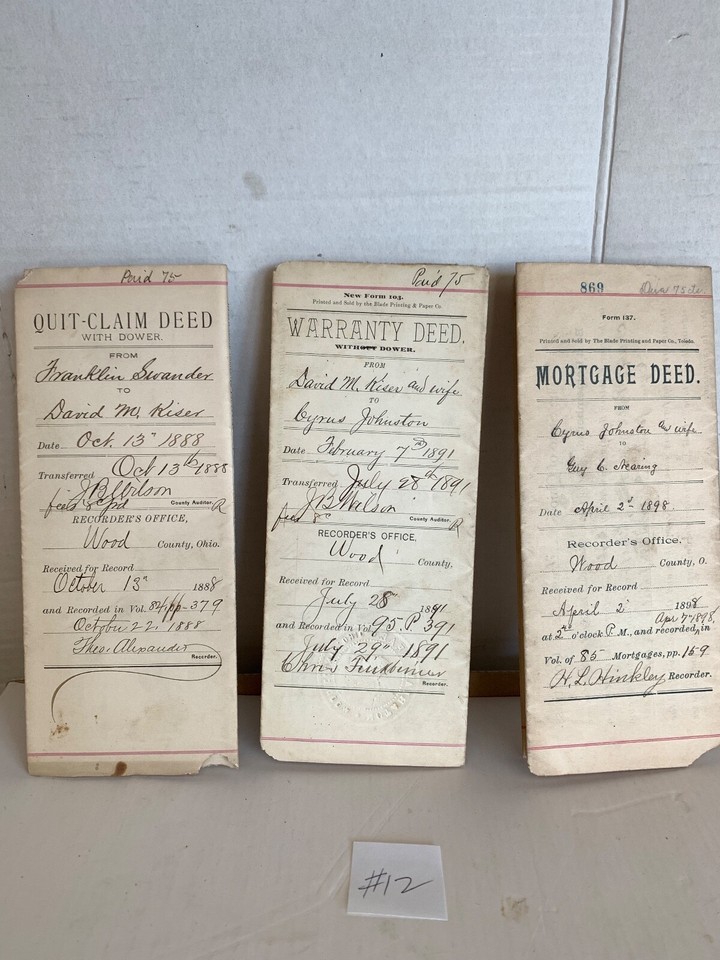 Paid 75
QUIT-CLAIM DEED
WITH DOWER.
FROM
Franklin Swander
TO
David M. Kiser
Date Oct. 13" 1888
Transferred Oct 13th 1888
J B Wilson
fees 8c pd County Auditor. R
RECORDER'S OFFICE,
Wood County, Ohio.
Received for Record
October 13" 1888
and Recorded in Vol. 82 pp-379
October 22, 1888
Theo. Alexander
Recorder.
Paid 75
New Form 104.
Printed and Sold by the Blade Printing & Paper Co.
WARRANTY DEED.
WITHOUT DOWER.
FROM
David M. Kiser and wife
TO
Cyrus Johnston
Date February 7th 1891
Transferred July 28th 1891
J B Wilson
fees 8c County Auditor. R
RECORDER'S OFFICE,
Wood County,
Received for Record
July 28 1891
and Recorded in Vol 95 P. 391
July 29" 1891
Chris
Recorder.
869
75
Form 137.
Printed and Sold by The Blade Printing and Paper Co., Toledo.
MORTGAGE DEED.
FROM
Cyrus Johnston and wife
TO
Guy C. Nearing
Date April 2d 1898.
Recorder's Office,
Wood County, O.
Received for Record
April 2 1898
Apr 7 1898
at 2 o'clock P. M., and recorded in
Vol. of 85 Mortgages, pp. 159
H. L. Hinkley Recorder.
#12